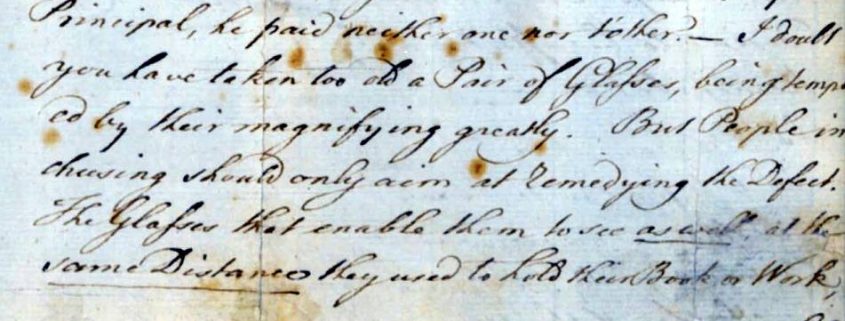 Principal, he paid neither one nor t'other. — I doubt
you have taken too old a Pair of Glasses, being tempt
ed by their magnifying greatly. But People in
chusing should only aim at remedying the Defect.
The Glasses that enable them to see as well at the
same Distance they used to hold their Book or Work,